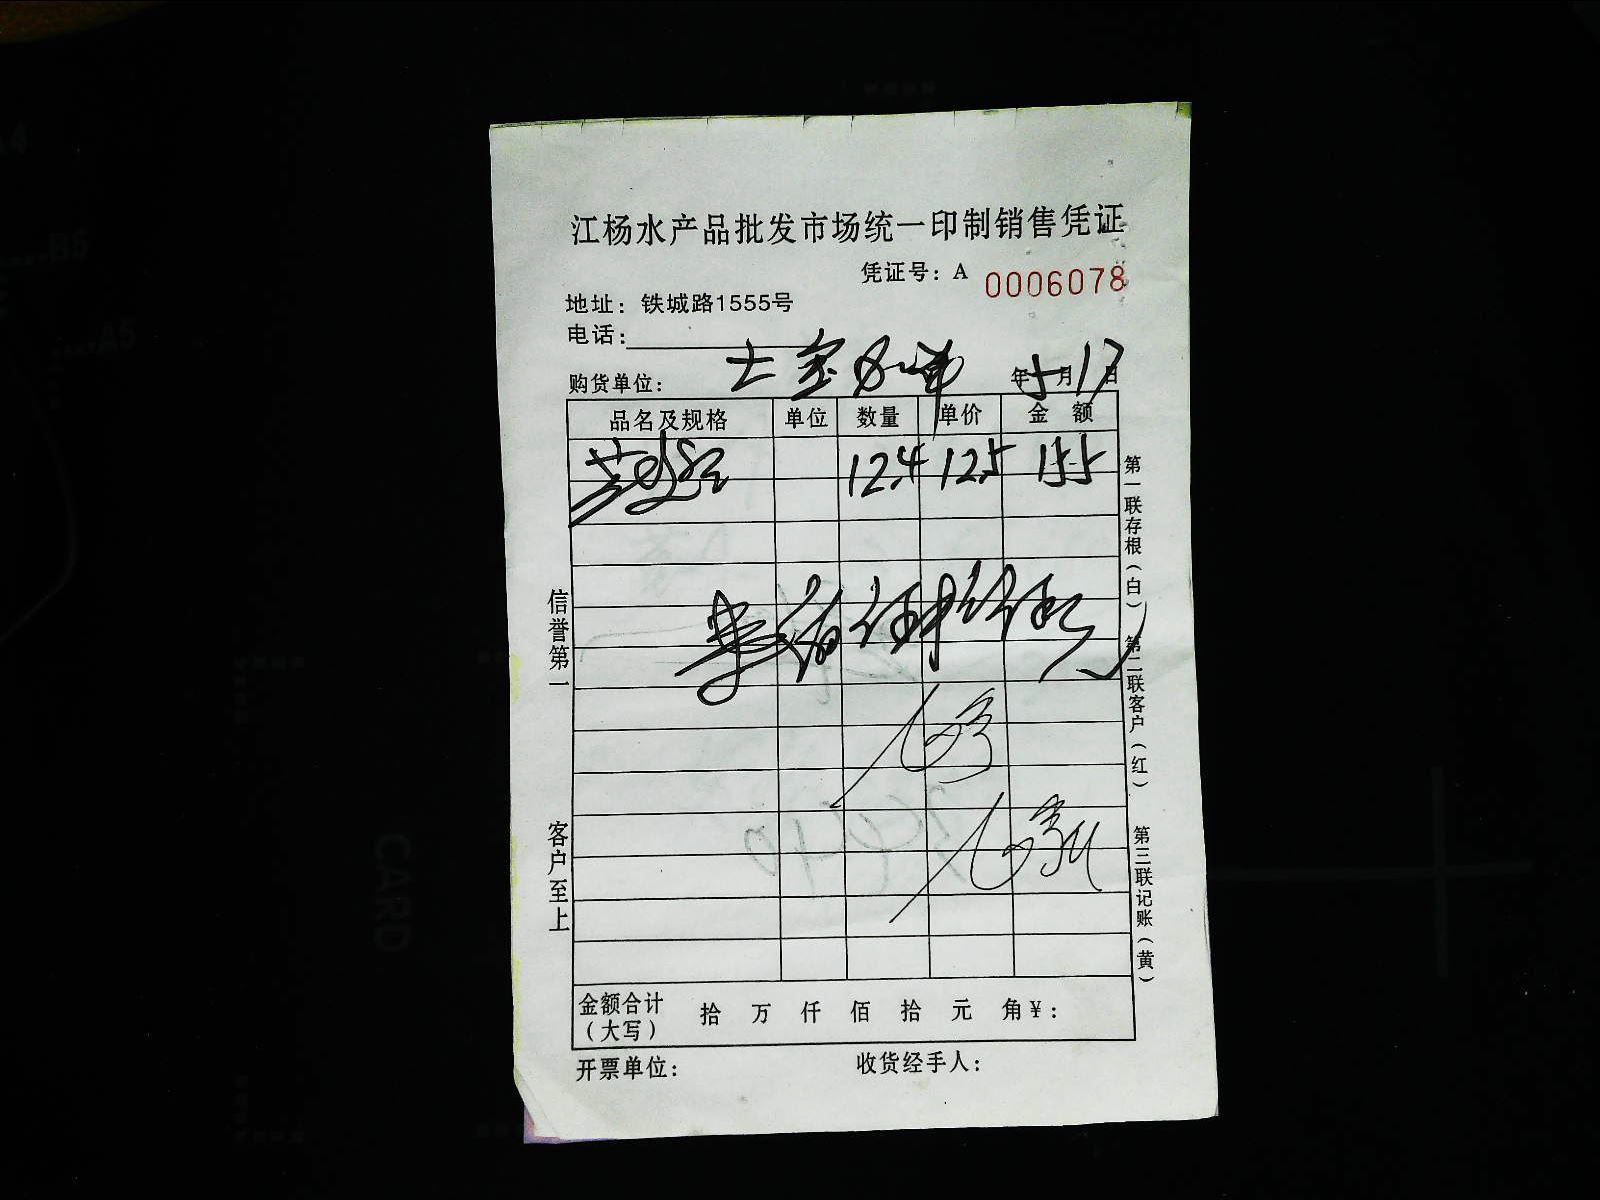 江杨水产品批发市场统一印制销售凭证
凭证号：A 0006078
地址：铁城路1555号
电话：
购货单位： 年5月17日
品名及规格 单位 数量 单价 金 额
12.4 12.5 155
信誉第一
客户至上
第一联存根（白）
第二联客户（红）
第三联记账（黄）
金额合计（大写） 拾 万 仟 佰 拾 元 角￥：
开票单位： 收货经手人：